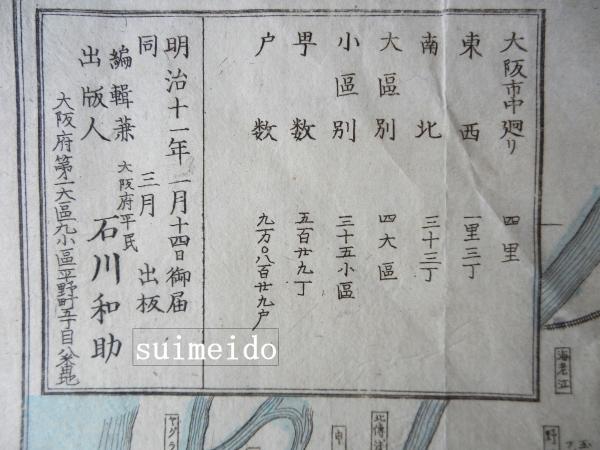 大阪市中廻り 四里
東西 一里三丁
南北 三十三丁
大區別 四大區
小區別 三十五小區
町数 五百廿九丁
户数 九万〇八百廿九户
明治十一年一月十四日御届
同 三月 出板
編輯兼
出版人
大阪府平民
石川和助
大阪府第一大區九小區平野町五丁目八番地
suimeido
海老江
野
北傳法
申
ヤグラ